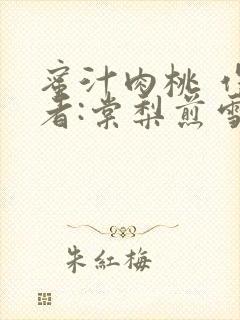 蜜汁肉桃
者:棠梨煎
朱紅梅